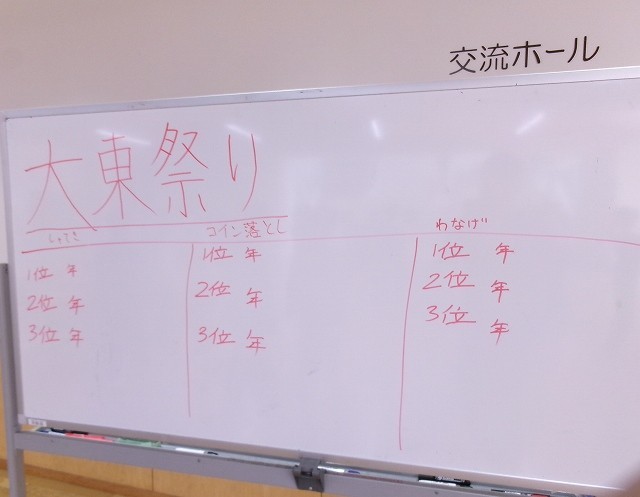 交流ホール
大東祭り
しゃてき
1位 年
2位 年
3位 年
コイン落とし
1位 年
2位 年
3位 年
わなげ
1位 年
2位 年
3位 年